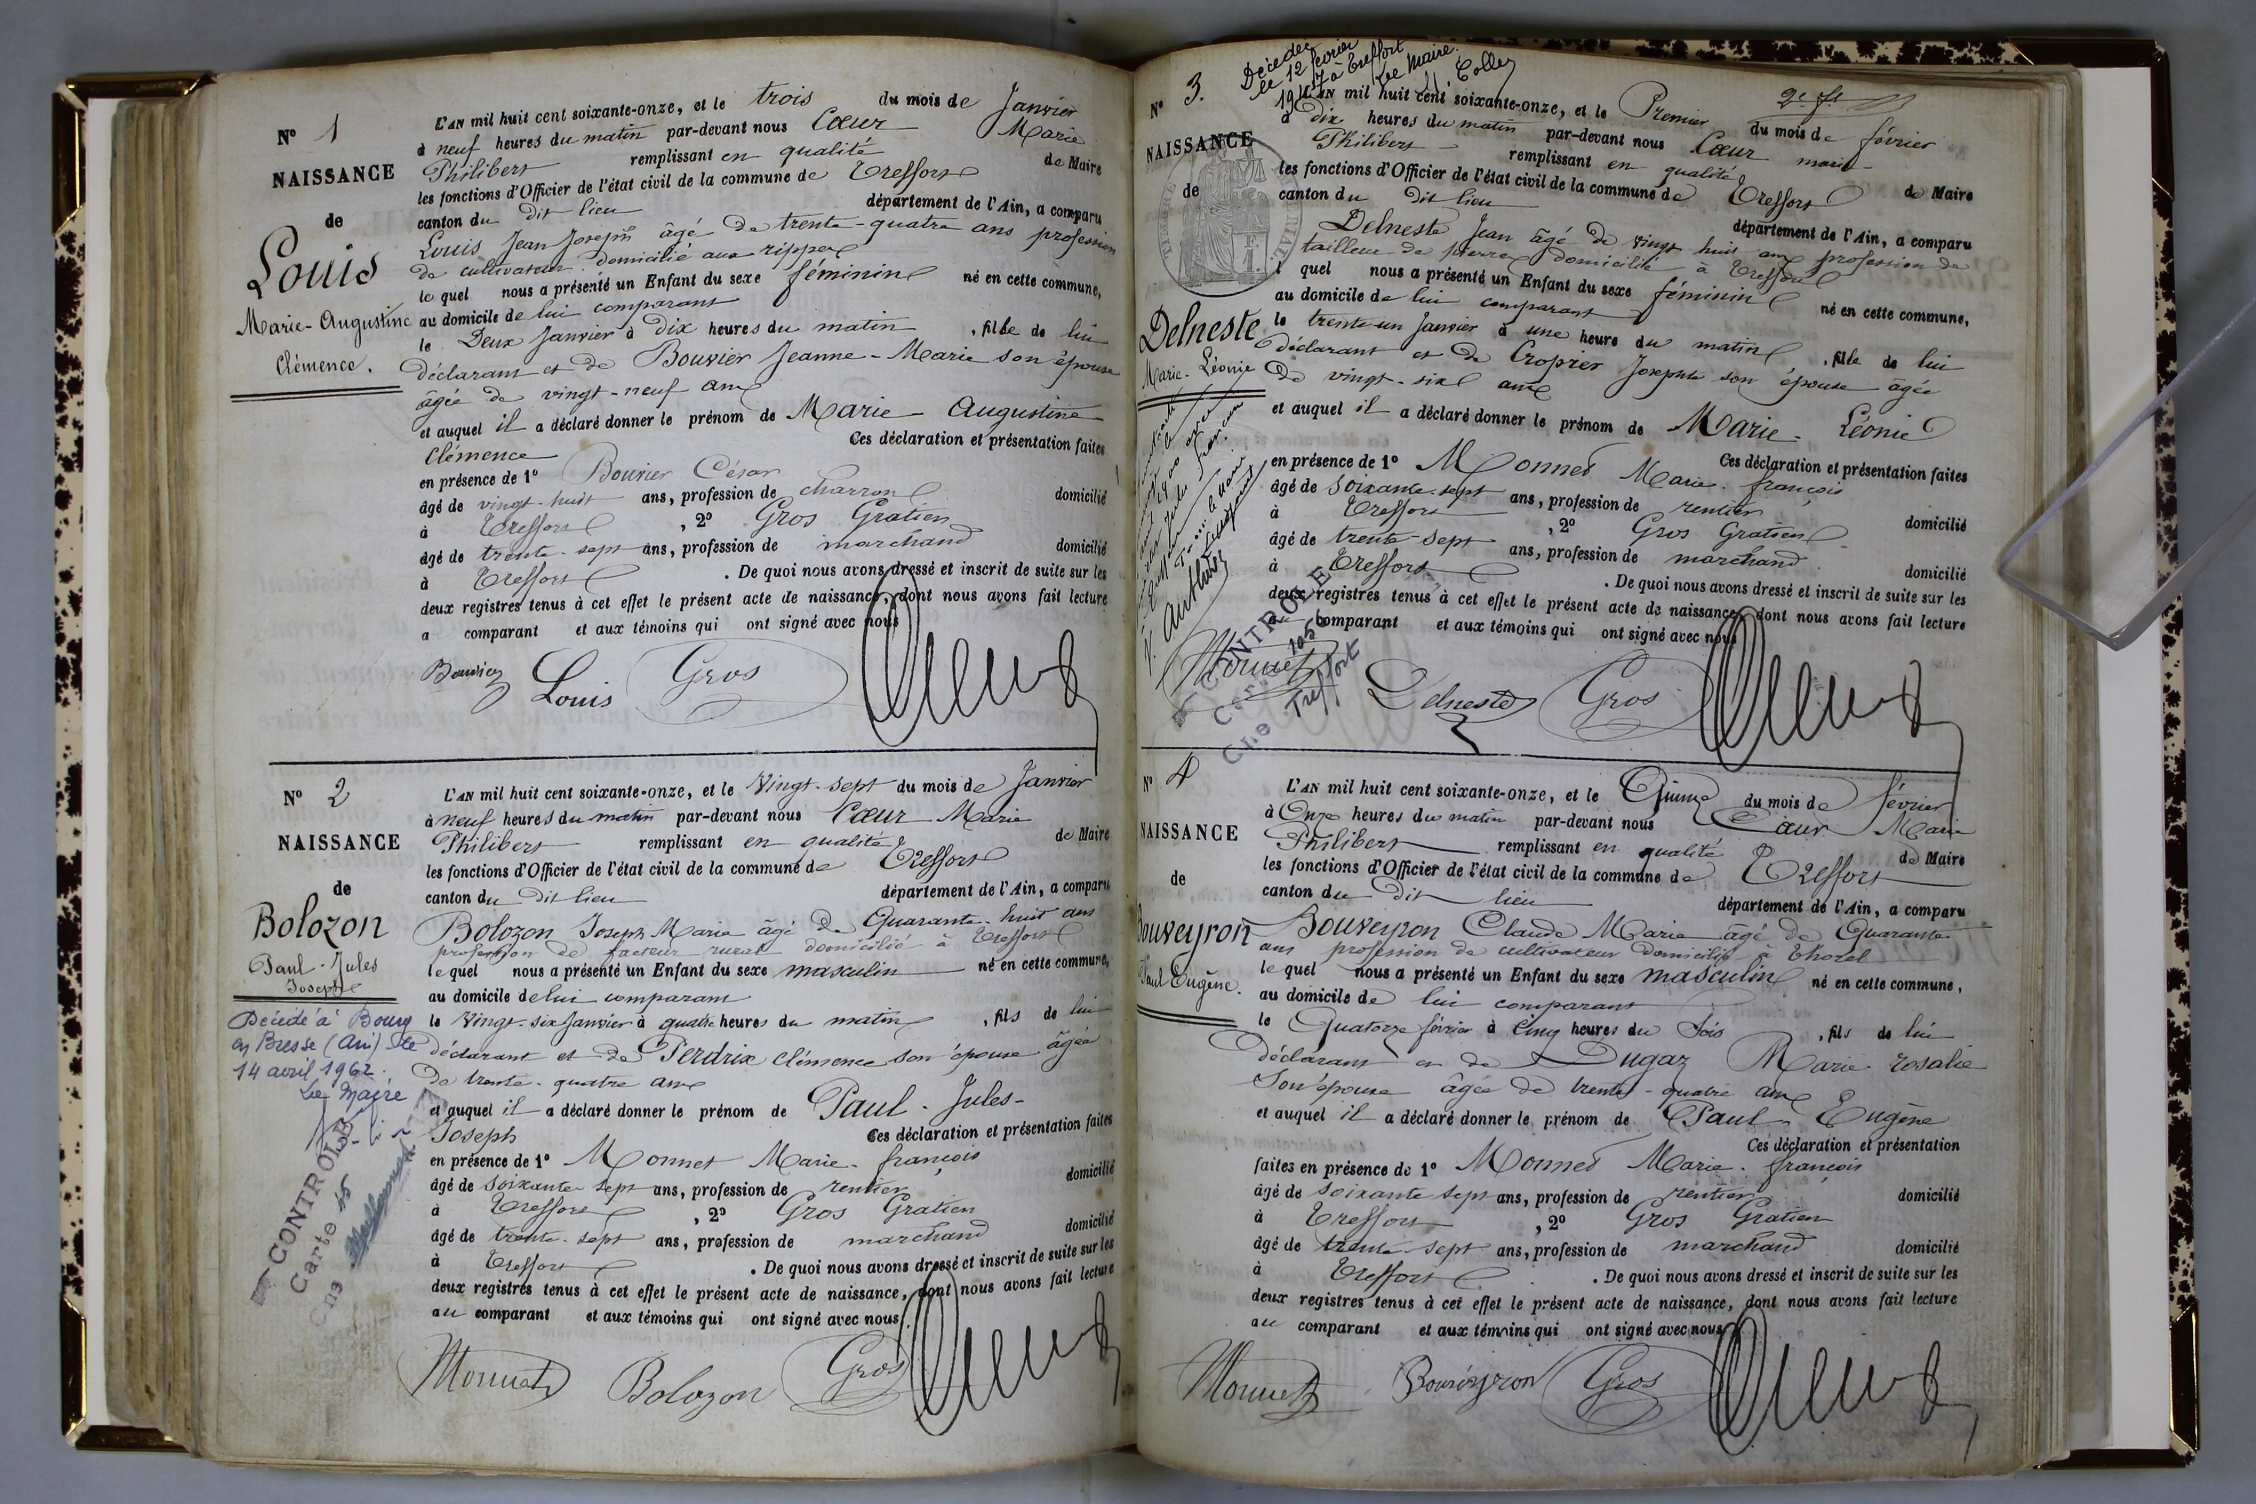 N° 1
NAISSANCE
de
Louis
Marie-Augustine
Clémence.
L'AN mil huit cent soixante-onze, et le trois du mois de Janvier
à neuf heures du matin par-devant nous Cœur Marie
Philibert remplissant en qualité de Maire
les fonctions d'Officier de l'état civil de la commune de Treffort
canton du dit lieu département de l'Ain, a comparu
Louis Jean Joseph âgé de trente-quatre ans profession
de cultivateur domicilié aux rippes
le quel nous a présenté un Enfant du sexe féminin né en cette commune,
au domicile de lui comparant
le Deux Janvier à dix heures du matin, fille de lui
déclarant et de Bouvier Jeanne-Marie son épouse
âgée de vingt-neuf ans
et auquel il a déclaré donner le prénom de Marie Augustine
Clémence Ces déclaration et présentation faites
en présence de 1° Bouvier César
âgé de vingt-huit ans, profession de charron domicilié
à Treffort, 2° Gros Gratien
âgé de trente-sept ans, profession de marchand domicilié
à Treffort. De quoi nous avons dressé et inscrit de suite sur les
deux registres tenus à cet effet le présent acte de naissance, dont nous avons fait lecture
a comparant et aux témoins qui ont signé avec nous
Bouvier Louis Gros
N° 2
NAISSANCE
de
Bolozon
Paul-Jules
Joseph
Décédé à Bourg
en Bresse (Ain) le
14 avril 1962.
Le Maire
CONTROLE
Carte 45
Cne
L'AN mil huit cent soixante-onze, et le Vingt-sept du mois de Janvier
à neuf heures du matin par-devant nous Cœur Marie
Philibert remplissant en qualité de Maire
les fonctions d'Officier de l'état civil de la commune de Treffort
canton du dit lieu département de l'Ain, a comparu
Bolozon Joseph Marie âgé de Quarante-huit ans
profession de facteur rural domicilié à Treffort
le quel nous a présenté un Enfant du sexe masculin né en cette commune,
au domicile de lui comparant
le Vingt-six Janvier à quatre heures du matin, fils de lui
déclarant et de Perdrix Clémence son épouse âgée
de trente-quatre ans
et auquel il a déclaré donner le prénom de Paul-Jules-
Joseph Ces déclaration et présentation faites
en présence de 1° Monnet Marie-françois
âgé de soixante-sept ans, profession de rentier domicilié
à Treffort, 2° Gros Gratien
âgé de trente-sept ans, profession de marchand domicilié
à Treffort. De quoi nous avons dressé et inscrit de suite sur les
deux registres tenus à cet effet le présent acte de naissance, dont nous avons fait lecture
au comparant et aux témoins qui ont signé avec nous.
Monnet Bolozon Gros
Décédée
le 12 février
19 à Treffort
Le Maire
2e ft
N° 3.
NAISSANCE
de
Delneste
Marie-Léonie
L'AN mil huit cent soixante-onze, et le Premier du mois de février
à dix heures du matin par-devant nous Cœur marie
Philibert remplissant en qualité de Maire
les fonctions d'Officier de l'état civil de la commune de Treffort
canton du dit lieu département de l'Ain, a comparu
Delneste Jean âgé de vingt huit ans profession de
tailleur de pierre domicilié à Treffort
l quel nous a présenté un Enfant du sexe féminin né en cette commune,
au domicile de lui comparant
le trente-un Janvier à une heure du matin, fille de lui
déclarant et de Cropier Josephte son épouse âgée
de vingt-six ans
et auquel il a déclaré donner le prénom de Marie-Léonie
Ces déclaration et présentation faites
en présence de 1° Monnet Marie-françois
âgé de soixante-sept ans, profession de rentier domicilié
à Treffort, 2° Gros Gratien
âgé de trente-sept ans, profession de marchand domicilié
à Treffort. De quoi nous avons dressé et inscrit de suite sur les
deux registres tenus à cet effet le présent acte de naissance, dont nous avons fait lecture
a comparant et aux témoins qui ont signé avec nous
Monnet Delneste Gros
CONTROLE
Cne Treffort
N° 4
NAISSANCE
de
Bouveyron
Paul Eugène.
L'AN mil huit cent soixante-onze, et le Quinze du mois de février
à Onze heures du matin par-devant nous Cœur Marie
Philibert remplissant en qualité de Maire
les fonctions d'Officier de l'état civil de la commune de Treffort
canton du dit lieu département de l'Ain, a comparu
Bouveyron Claude Marie âgé de Quarante
ans profession de cultivateur domicilié à Thorel
le quel nous a présenté un Enfant du sexe masculin né en cette commune,
au domicile de lui comparant
le Quatorze février à Cinq heures du Soir, fils de lui
déclarant et de Dugaz Marie rosalie
Son épouse âgée de trente-quatre ans
et auquel il a déclaré donner le prénom de Paul Eugène
Ces déclaration et présentation
faites en présence de 1° Monnet Marie-françois
âgé de soixante sept ans, profession de rentier domicilié
à Treffort, 2° Gros Gratien
âgé de trente-sept ans, profession de marchand domicilié
à Treffort. De quoi nous avons dressé et inscrit de suite sur les
deux registres tenus à cet effet le présent acte de naissance, dont nous avons fait lecture
au comparant et aux témoins qui ont signé avec nous
Monnet Bouveyron Gros